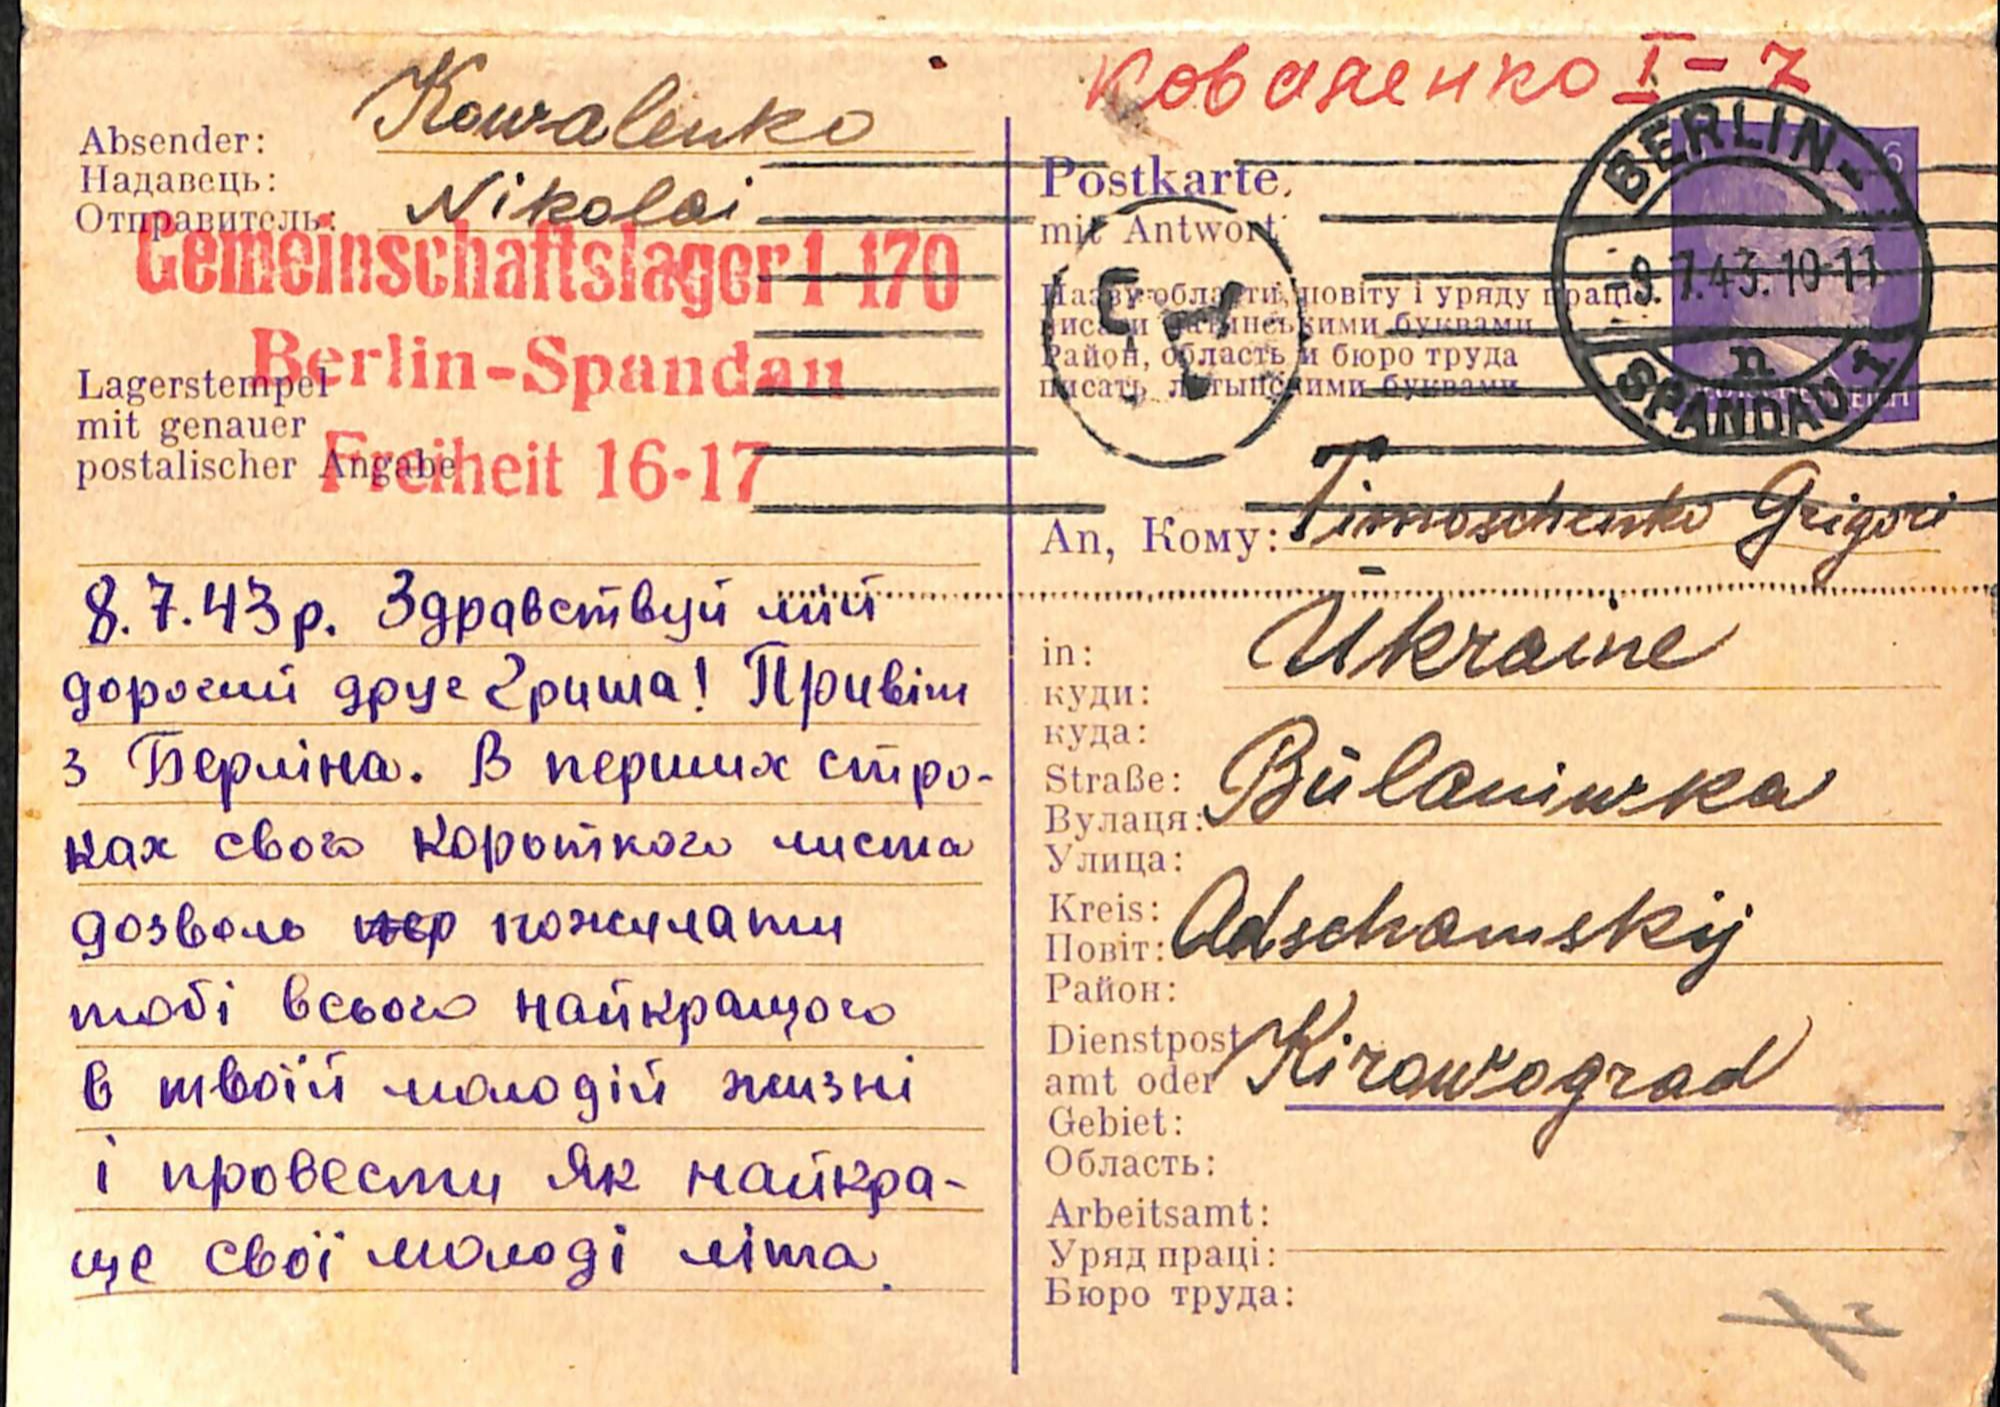 Коваленко I-7
Absender: Kowalenko
Надавець:
Отправитель: Nikolai
Gemeinschaftslager 1 170
Berlin-Spandau
Freiheit 16-17
Lagerstempel
mit genauer
postalischer Angabe
8.7.43р. Здравствуй мій
дорогий друг Гриша! Привіт
з Берліна. В перших стро-
ках свого короткого листа
дозволь пожилати
тобі всього найкращого
в твоїй молодій жизні
і провести як найкра-
ще свої молоді літа.
Postkarte
mit Antwort
6
BERLIN-
-9.7.43.10-11
n
SPANDAU 1
Назву области, повіту і уряду праці
писати латинськими буквами
Район, область и бюро труда
писать латынскими буквами
An, Кому: Timoschenko Grigori
in: Ukraine
куди:
куда:
Straße: Bulaniwka
Вулаця:
Улица:
Kreis: Adschamskij
Повіт:
Район:
Dienstpost
amt oder Kirowograd
Gebiet:
Область:
Arbeitsamt:
Уряд праці:
Бюро труда: